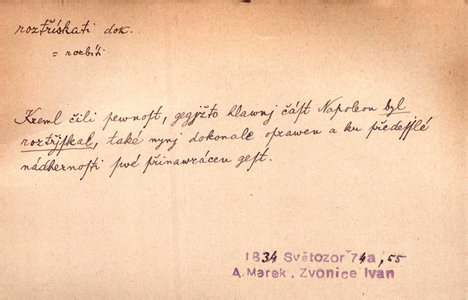 roztřískati dok.
= rozbíti
Kreml čili pewnost, gegjžto hlawnj část Napoleon byl
roztřjskal, také nynj dokonale oprawen a ku předešlé
nádhernosti swé přinawrácen gest.
1834 Světozor 74a, 55
A. Marek, Zvonice Ivan